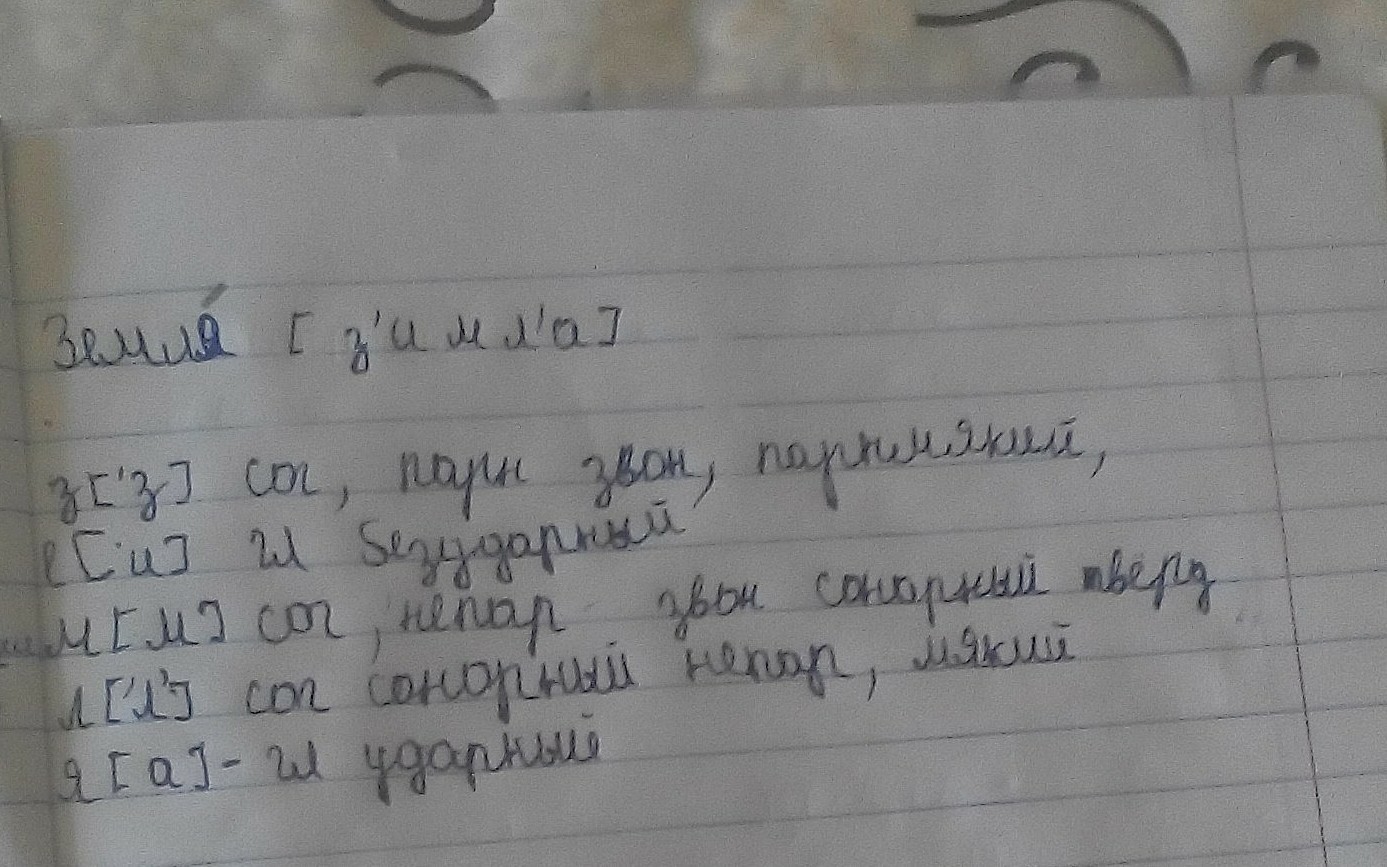 Земля́ [ з'и м л'а]
з['з] сог, парн звон, парнмякий,
е['и] гл безударный
м [м] сог, непар звон сонорный твёрд
л ['л'] сог сонорный непар, мякий
я [а] - гл ударный